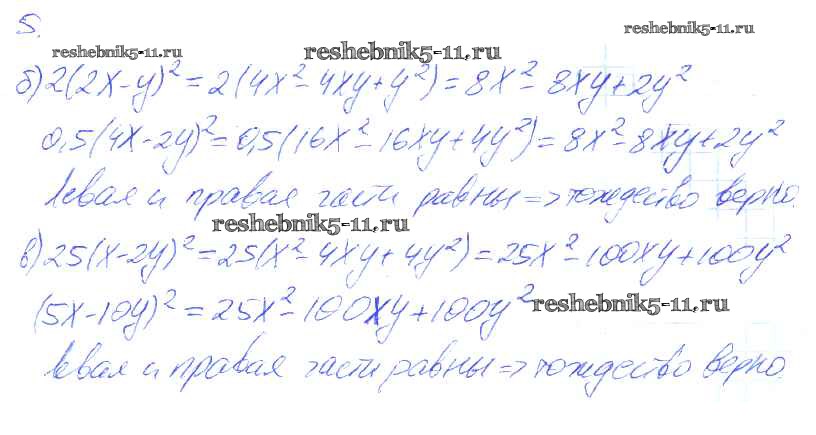 5.
reshebnik5-11.ru
reshebnik5-11.ru reshebnik5-11.ru
б) 2(2x-y)² = 2(4x² - 4xy + y²) = 8x² - 8xy + 2y²
0,5(4x-2y)² = 0,5(16x² - 16xy + 4y²) = 8x² - 8xy + 2y²
левая и правая части равны => тождество верно.
reshebnik5-11.ru
в) 25(x-2y)² = 25(x² - 4xy + 4y²) = 25x² - 100xy + 100y²
(5x-10y)² = 25x² - 100xy + 100y² reshebnik5-11.ru
левая и правая части равны => тождество верно.